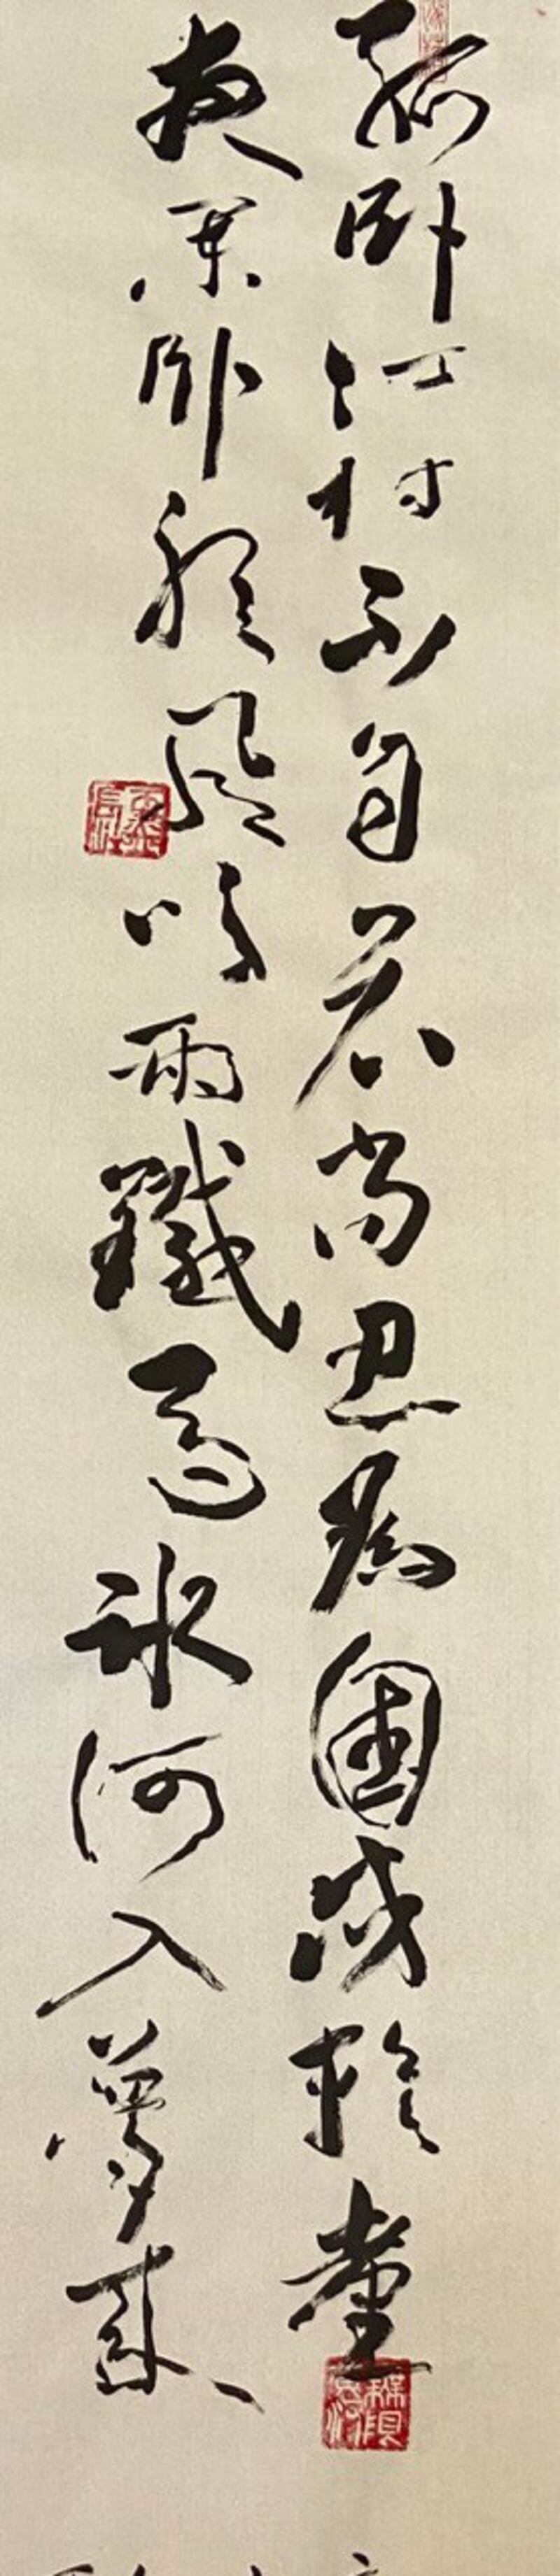 孤卧江村不自哀尚思為國戍輪臺
夜闌卧聽風吹雨鐵馬冰河入夢來